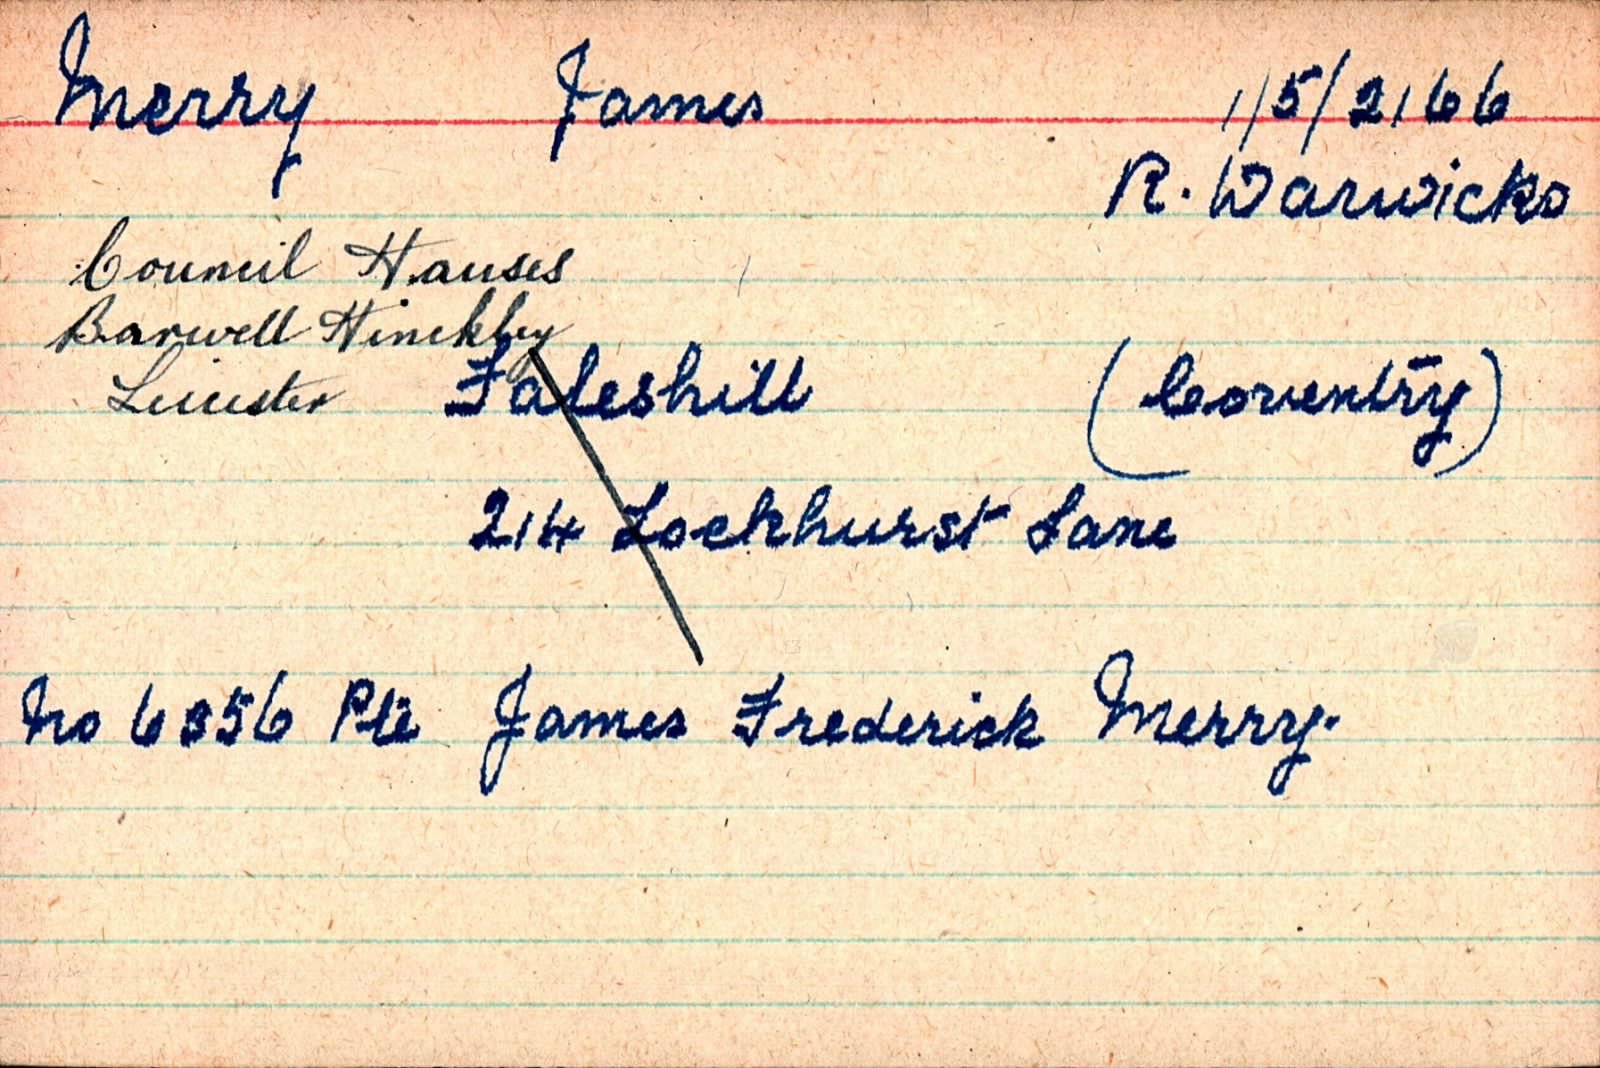 Merry James 1/5/2166
R. Warwicks
Council Houses
Barwell Hinckley
Leicester Foleshill (Coventry)
214 Lockhurst Lane
No 6356 Pte James Frederick Merry.